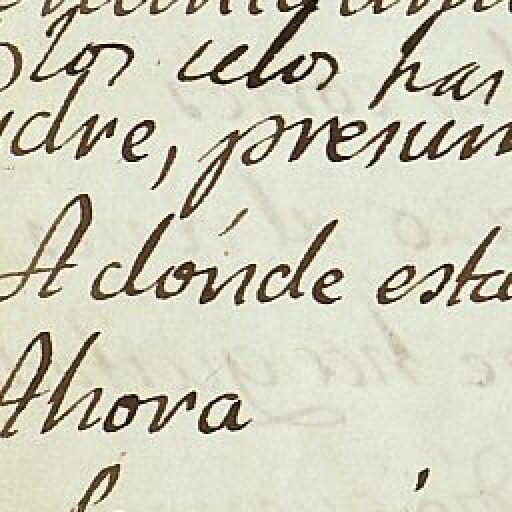 los celos has
dre, presum
Adónde esta
Ahora